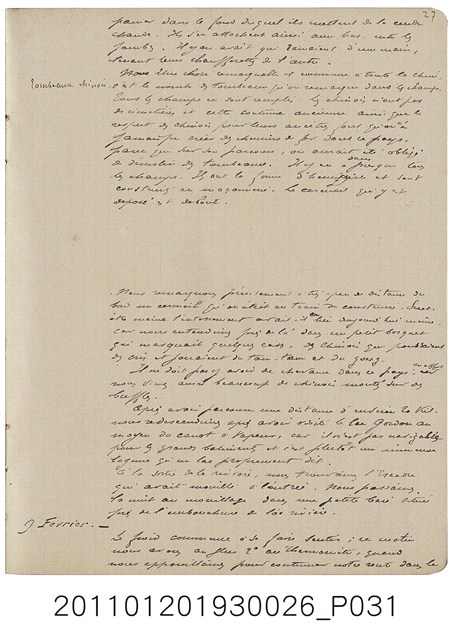 27
panier dans le fond duquel ils mettent de la cendre
chaude. Ils s'en attachent ainsi aux bas, entre les
jambes. Il y en avait qui ramaient d'une main,
tenant leur chaufferette de l'autre.
Tombeaux chinois.
Une chose remarquable et commune à toute la Chine
est le nombre de tombeaux qu'on remarque dans les champs.
Tous les champs en sont remplis. Les chinois n'ont pas
de cimetières et cette coutume ancienne ainsi que le
respect des chinois pour leurs ancêtres font qu'on a
jamais pu créer des chemins de fer dans ce pays,
parce que sur son parcours, on aurait été obligé
de démolir des tombeaux. Il y en a dans presque tous
les champs. Ils ont la forme d'hémisphère et sont
construits en maçonnerie. Le cercueil qui y est
déposé est debout.
Nous remarquons précisément à très peu de distance du
bord un cercueil qu'on était en train de construire. Peut-
être même l'enterrement avait-il lieu aujourd'hui même
car nous entendions près de là dans un petit bosquet
qui masquait quelques cases, des chinois qui poussaient
des cris et jouaient du tam-tam et du gong.
Il ne doit pas y avoir de chevaux dans ce pays, car
nous vîmes aussi beaucoup de chinois montés sur des
buffles.
Après avoir parcouru une distance d'environ 20 kil.
nous redescendons après avoir visité le lac Gordon au
moyen du canot à vapeur, car il n'est pas navigable
pour les grands bâtiments et c'est plutôt un immense
lagune qu'un lac proprement dit.
A la sortie de la rivière, nous trouvons l'Escadre
qui avait mouillé à l'entrée. Nous passons
la nuit au mouillage dans une petite baie située
près de l'embouchure de la rivière.
9 Février. —
Le froid commence à se faire sentir; ce matin
nous avons au plus 2° au thermomètre, quand
nous appareillons pour continuer notre route dans le
201101201930026_P031